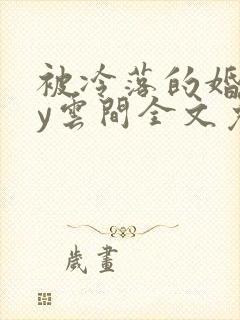 被冷落的婚
y雲間全文
歲畫